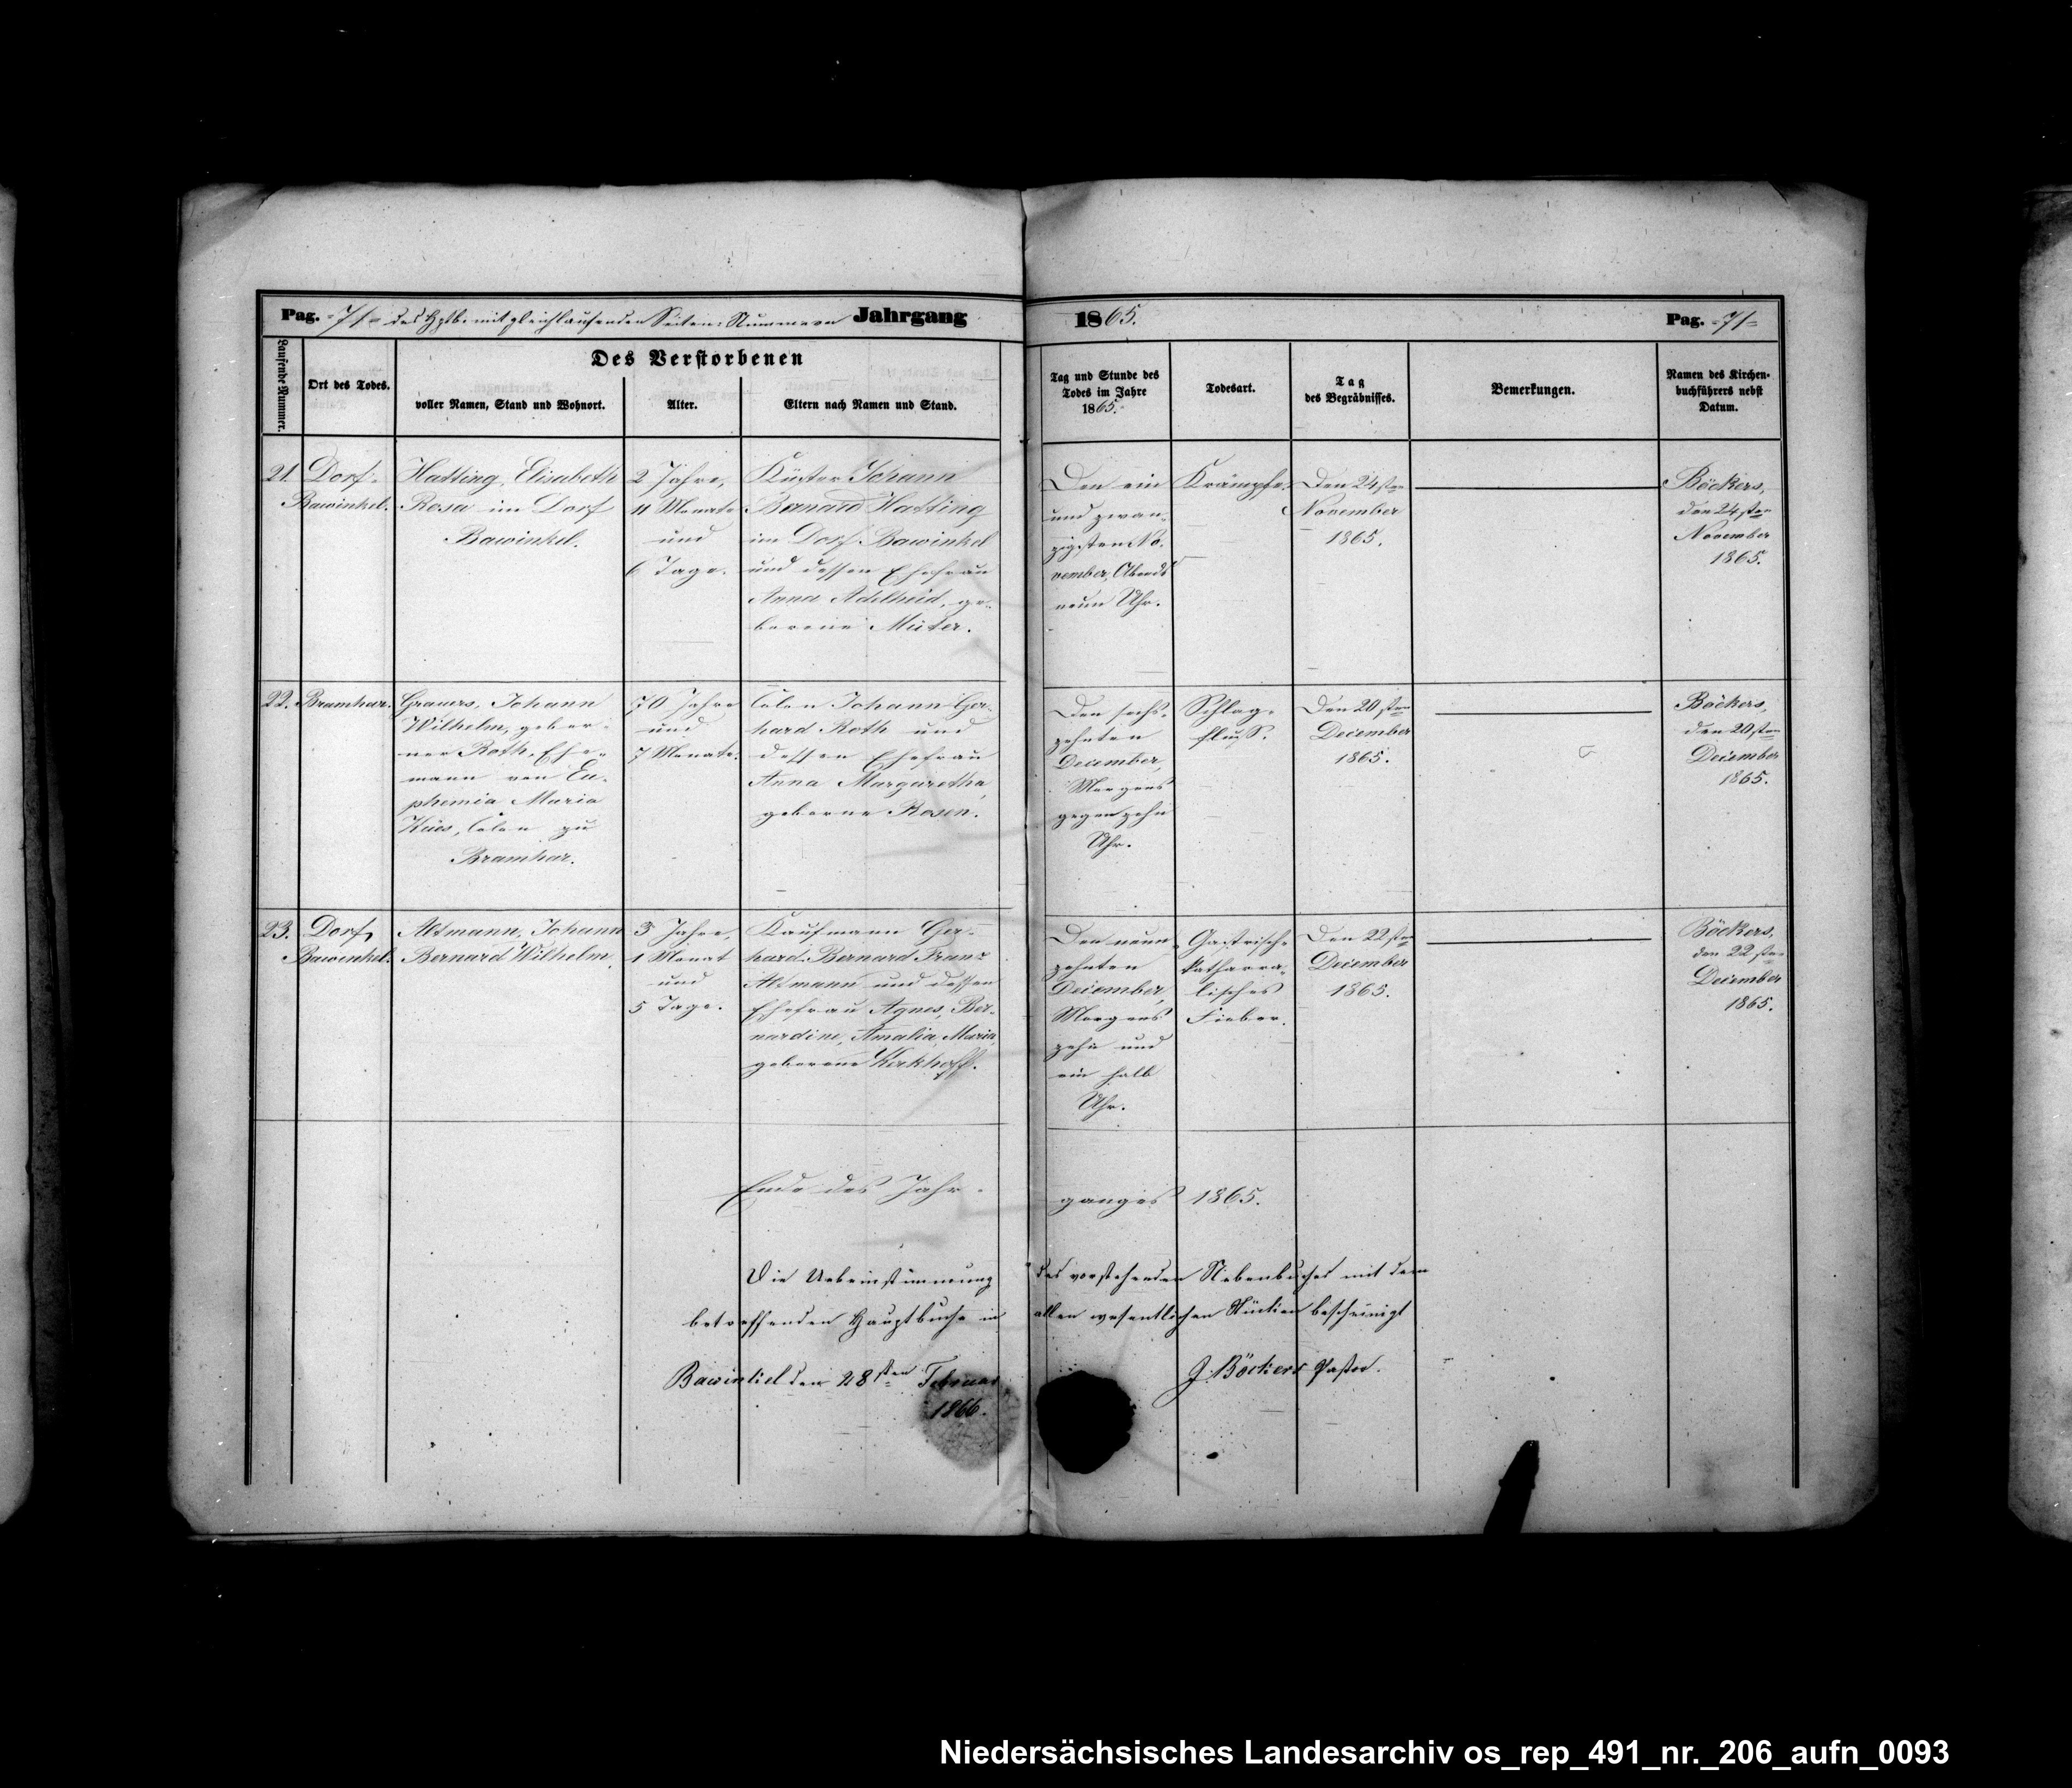 Pag. -71- des Hptb. mit gleichlaufenden Seiten-Nummern Jahrgang
1865. Pag. -71-
Laufende Nummer.
Ort des Todes.
Des Verstorbenen
voller Namen, Stand und Wohnort.
Alter.
Eltern nach Namen und Stand.
Tag und Stunde des
Todes im Jahre
1865.
Todesart.
Tag
des Begräbnisses.
Bemerkungen.
Namen des Kirchen-
buchführers nebst
Datum.
21.
Dorf-
Bawinkel.
Hatting, Elisabeth
Rosa im Dorf
Bawinkel.
2 Jahre,
11 Monate
und
6 Tage.
Küster Johann
Bernard Hatting
im Dorf Bawinkel
und dessen Ehefrau
Anna Adelheid, ge-
borene Müter.
Den ein
und zwan-
zigsten No-
vember, Abends
neun Uhr.
Krämpfe.
Den 24sten
November
1865.
Böckers,
den 24sten
November
1865.
22.
Bramhar.
Grauers, Johann
Wilhelm, gebor-
ner Roth, Ehe-
mann von Eu-
phemia Maria
Kües, Colon zu
Bramhar.
70 Jahre
und
7 Monate.
Colon Johann Ger-
hard Roth und
dessen Ehefrau
Anna Margaretha,
geborne Rosen.
Den sechs-
zehnten
December,
Morgens
gegen zehn
Uhr.
Schlag-
fluß.
Den 20sten
December
1865.
Böckers,
den 20sten
December
1865.
23.
Dorf,
Bawinkel.
Altmann, Johann
Bernard Wilhelm,
3 Jahre,
1 Monat
und
5 Tage.
Kaufmann Ger-
hard Bernard Franz
Altmann und dessen
Ehefrau Agnes, Ber-
nardine, Amalia, Maria,
geborene Kerkhoff.
Den neun-
zehnten
December,
Morgens
zehn und
ein halb
Uhr.
Gastrisch-
katharra-
lisches
Fieber.
Den 22sten
December
1865.
Böckers,
den 22sten
December
1865.
Ende des Jahr-
ganges 1865.
Die Uebereinstimmung des vorstehenden Nebenbuches mit dem
betreffenden Hauptbuche in allen wesentlichen Stücken bescheinigt
Bawinkel den 28sten Februar J. Böckers Pastor.
1866.
Niedersächsisches Landesarchiv os_rep_491_nr._206_aufn_0093